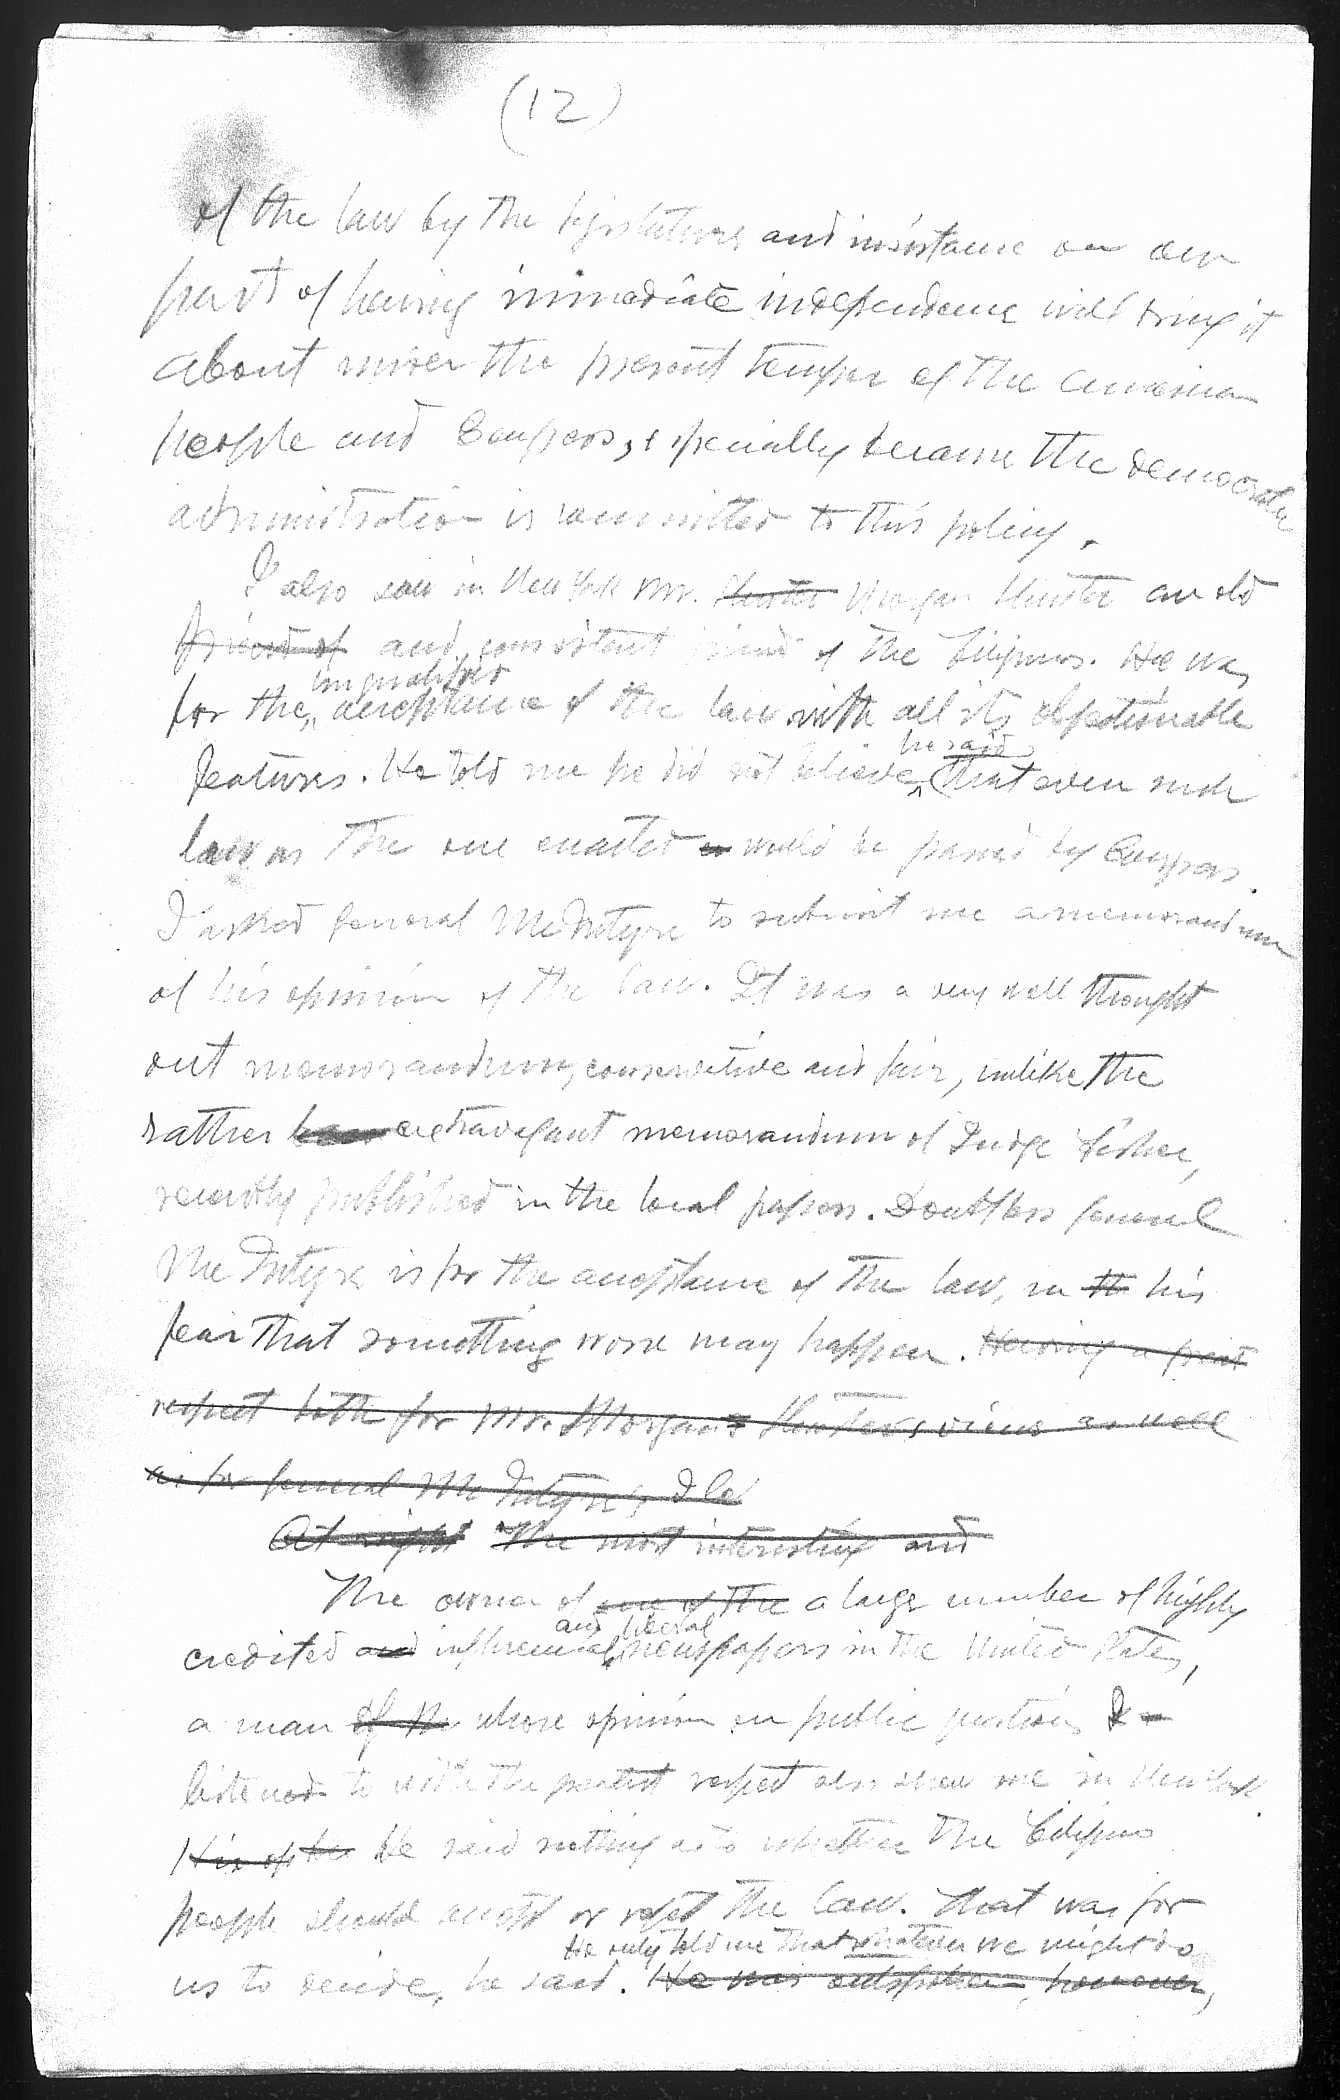 (12)
of the law by the legislature and insistance on our
part of having immediate independence will bring it
about under the present temper of the American
people and Congress, especially because the democratic
administration is committed to this policy.
I also saw in New York Mr. Hunter Morgan Shuster an old
friend of and consistent friend of the Filipinos. He was
unqualified
for the acceptance of the law with all its objectionable
he said
features. He told me he did not believe, that even such
law as the one enacted would be passed by Congress.
I asked General McIntyre to submit me a memorandum
of his opinion of the law. It was a very well thought
out memorandum, conservative and fair, unlike the
rather extravagant memorandum of Judge Fisher,
recently published in the local papers. Doubtless General
McIntyre is for the acceptance of the law, in th his
fear that something worse may happen. Having a great
respect both for Mr. Morgan Shuster's views as well
as for General McIntyre's, I la
At night The most interesting and
The owner of one of the a large number of highly
and liberal
credited and influencial newspapers in the United States,
a man of the whose opinion on public questions I
listened to with the greatest respect also saw me in New York
His op he He said nothing as to whether the Filipino
people should accept or reject the law. That was for
He only told me that whatever we might do
us to decide, he said. He was outspoken, however,